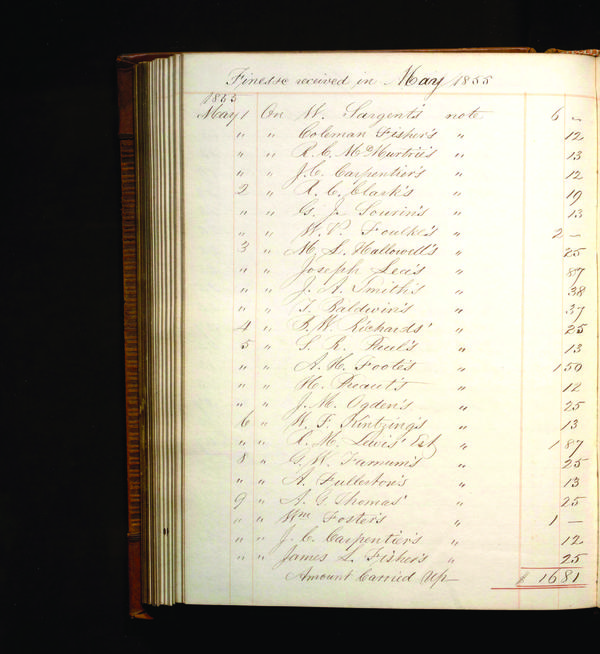 Fines &c received in May 1855
1855
May 1 On W. Sargent's note 6 –
" " Coleman Fisher's " 12
" " R. C. McMurtrie's " 13
" " J. C. Carpentier's " 12
2 " A. C. Clark's " 19
" " G. J. " 13
" " W. P. Foulke's " 2 –
3 " M. L. Hallowell's " 25
" " Joseph Lea's " 87
" " J. A. Smith's " 38
" " T. Baldwin's " 37
4 " B. W. Richards' " 25
5 " " 13
" " A. H. Foote's " 1 50
" " H. " 12
" " J. M. Ogden's " 25
6 " W. F. Kintzing's " 13
" " R. M. Lewis' Est " 1 87
8 " G. W. Farnum's " 25
" " A. Fullerton's " 13
9 " A. G. Thomas' " 25
" " Wm Foster's " 1 –
" " J. C. Carpentier's " 12
" " James L. Fisher's " 25
Amount Carried Up $ 16 81